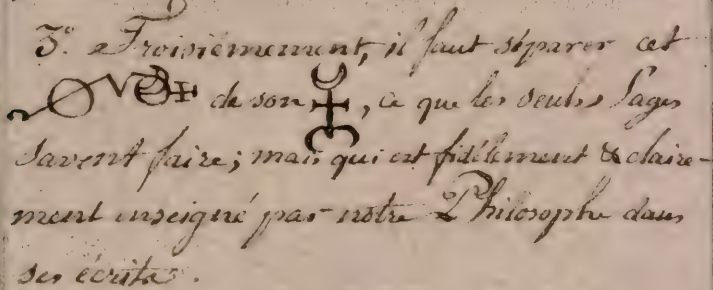 3.° Troisièmement, il faut séparer cet
de son , ce que les seuls Sages
savent faire; mais qui est fidélement & claire-
ment enseigné par notre Philosophe dans
ses écrits.